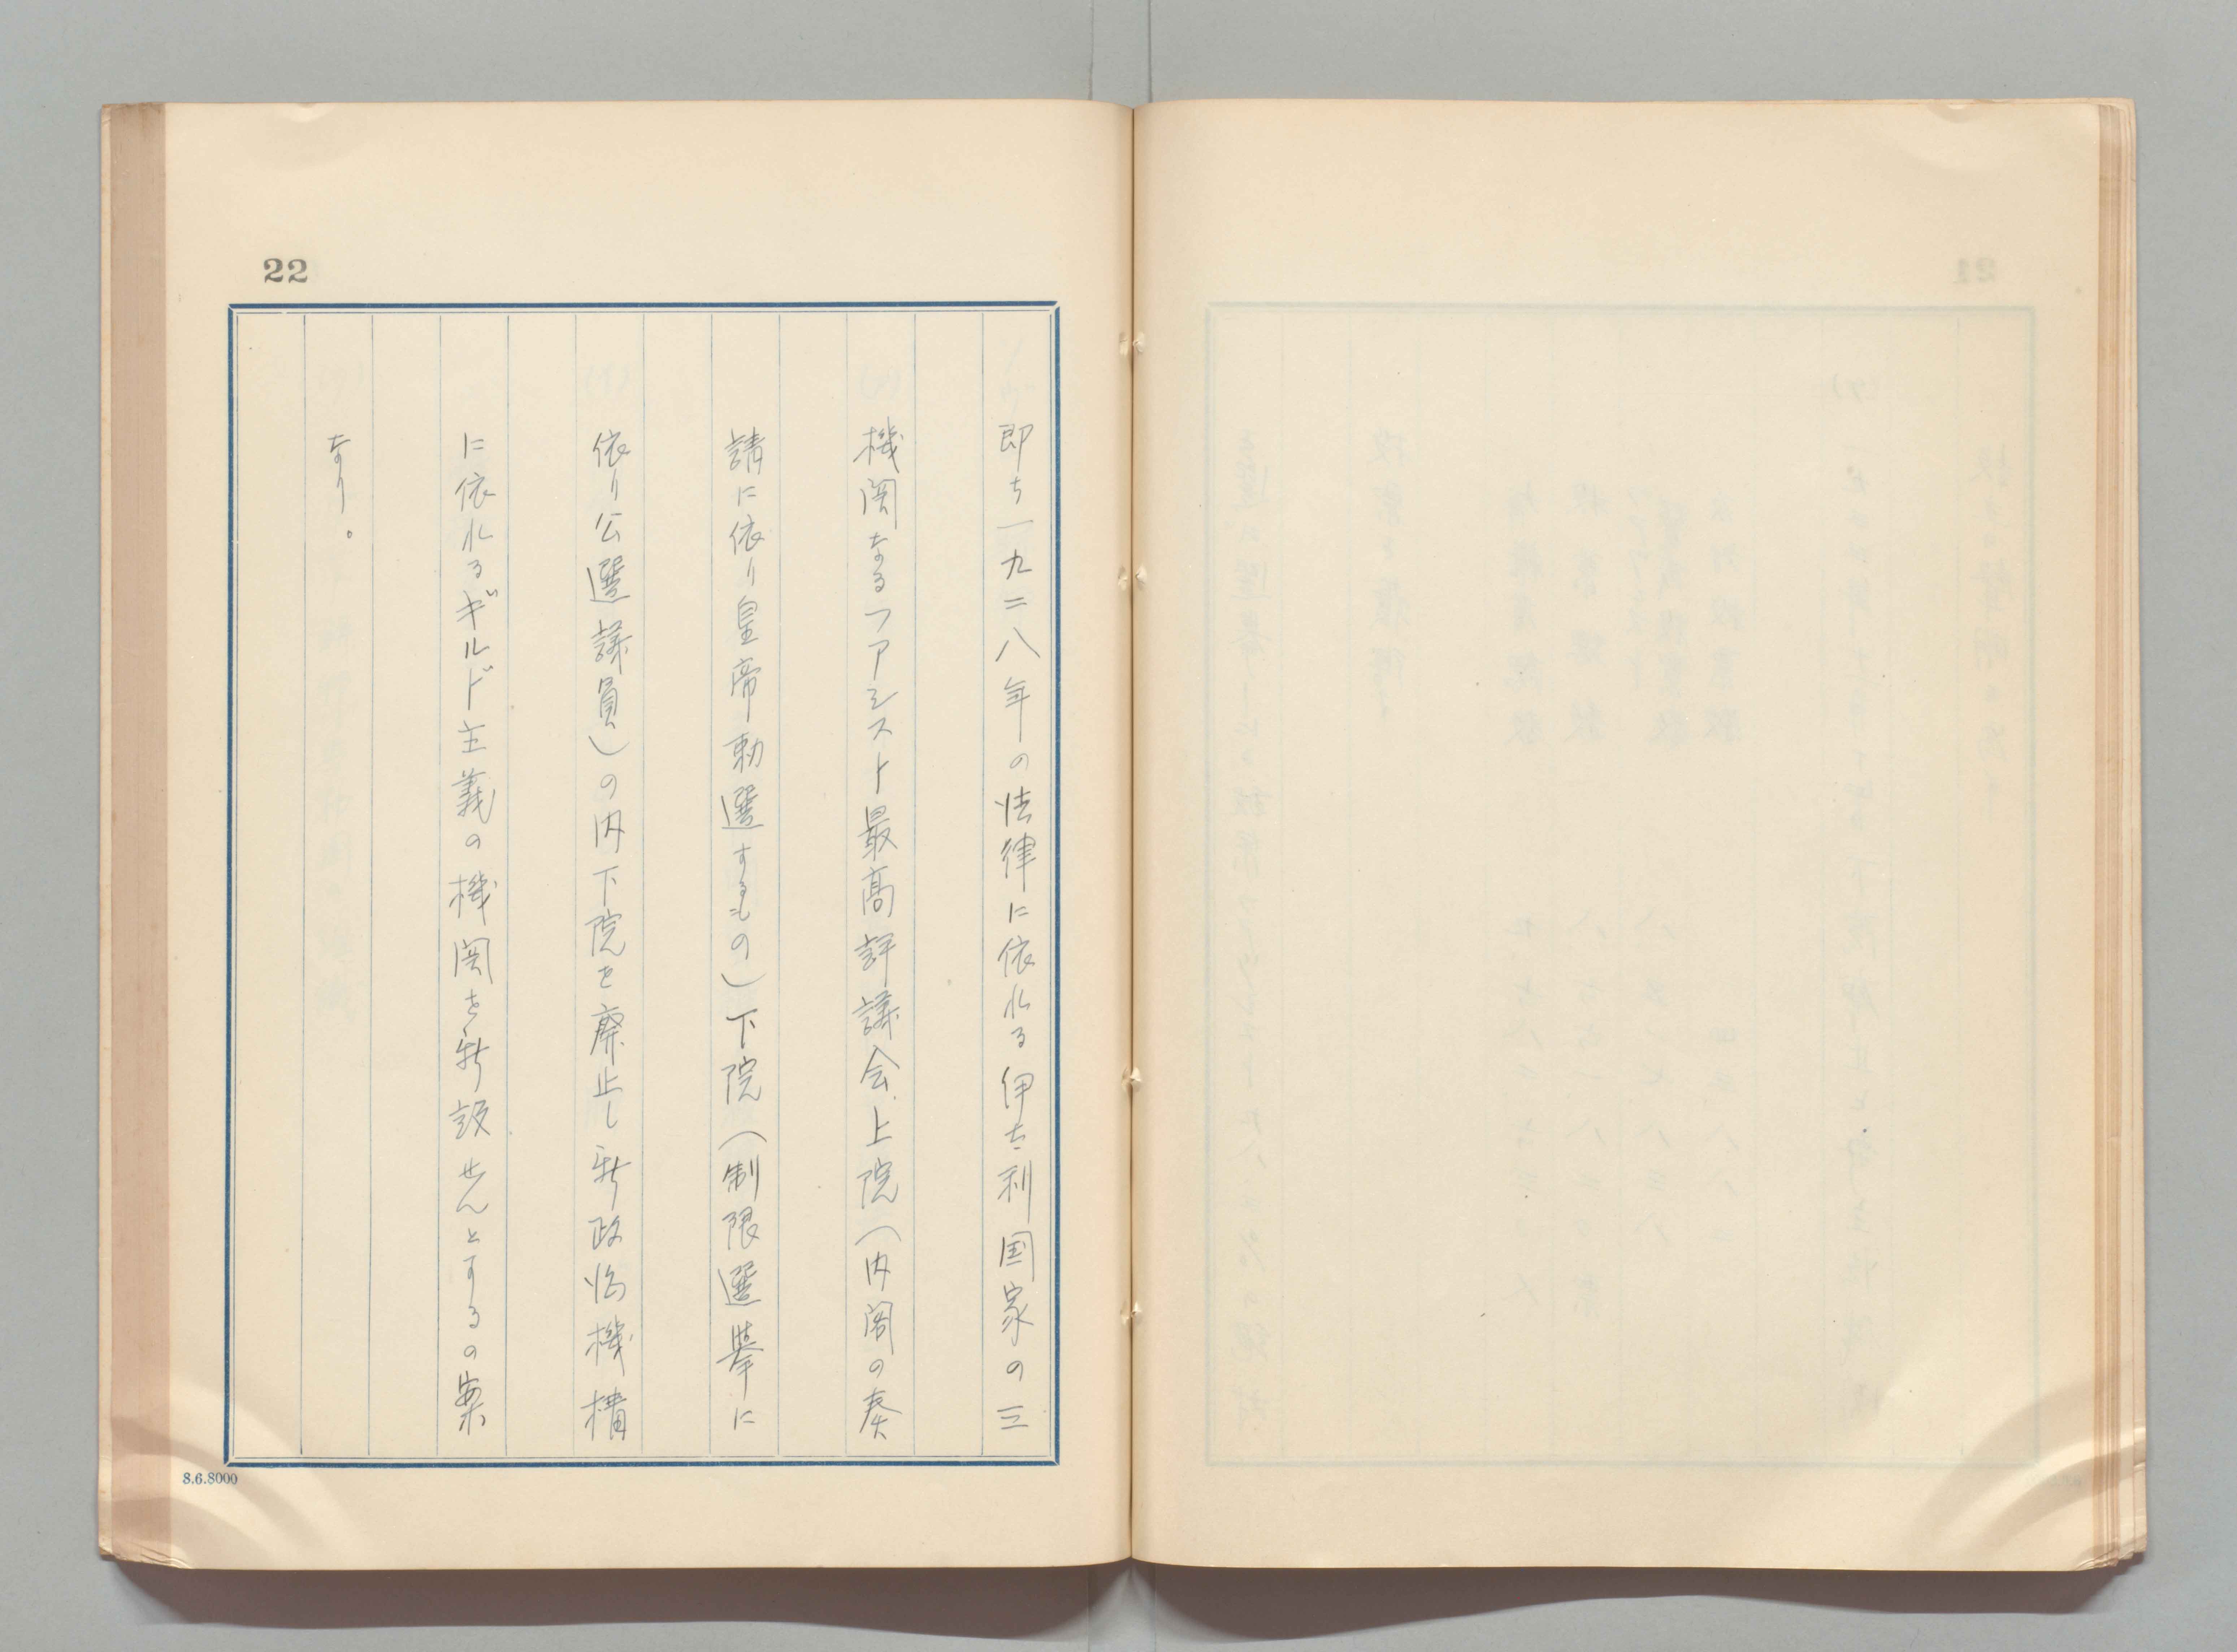 22
即ち一九二八年の法律に依れる伊太利国家の三
機関なるファシスト最高評議会、上院(内閣の奏
請に依り皇帝勅選するもの)下院(制限選挙に
依り公選議員)の内下院を廃止し新政治機構
に依れるギルド主義の機関を新設せんとするの案
なり。
8.6.8000